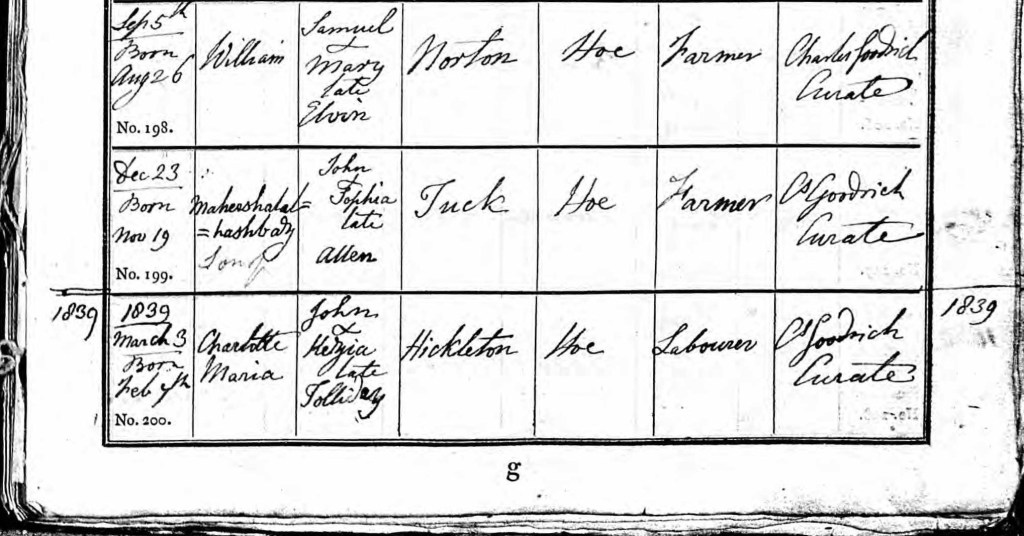 Sep 5th
Born
Aug 26
No. 198.
William
Samuel
&
Mary
late
Elvin
Norton
Hoe
Farmer
Charles Goodrich
Curate
Dec 23
Born
Nov 19
No. 199.
Mahershalal
=hashbaz
Son of
John
Sophia
late
Allen
Tuck
Hoe
Farmer
Cs Goodrich
Curate
1839
1839
March 3
Born
Feb 7th
No. 200.
Charlotte
Maria
John
&
Kezia
late
Hickleton
Hoe
Labourer
Cs Goodrich
Curate
1839
g